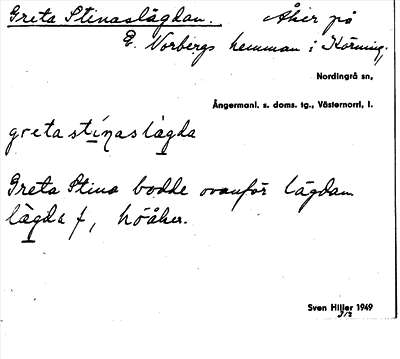 Greta Stinaslägdan. Åker på
E. Norbergs hemman i Körning,
Nordingrå sn,
Ångermanl. s. doms. tg., Västernorrl. l.
greta stínas làgda
Greta Stina bodde ovanför lägdan
lägda f, höåker.
Sven Hiller 1949